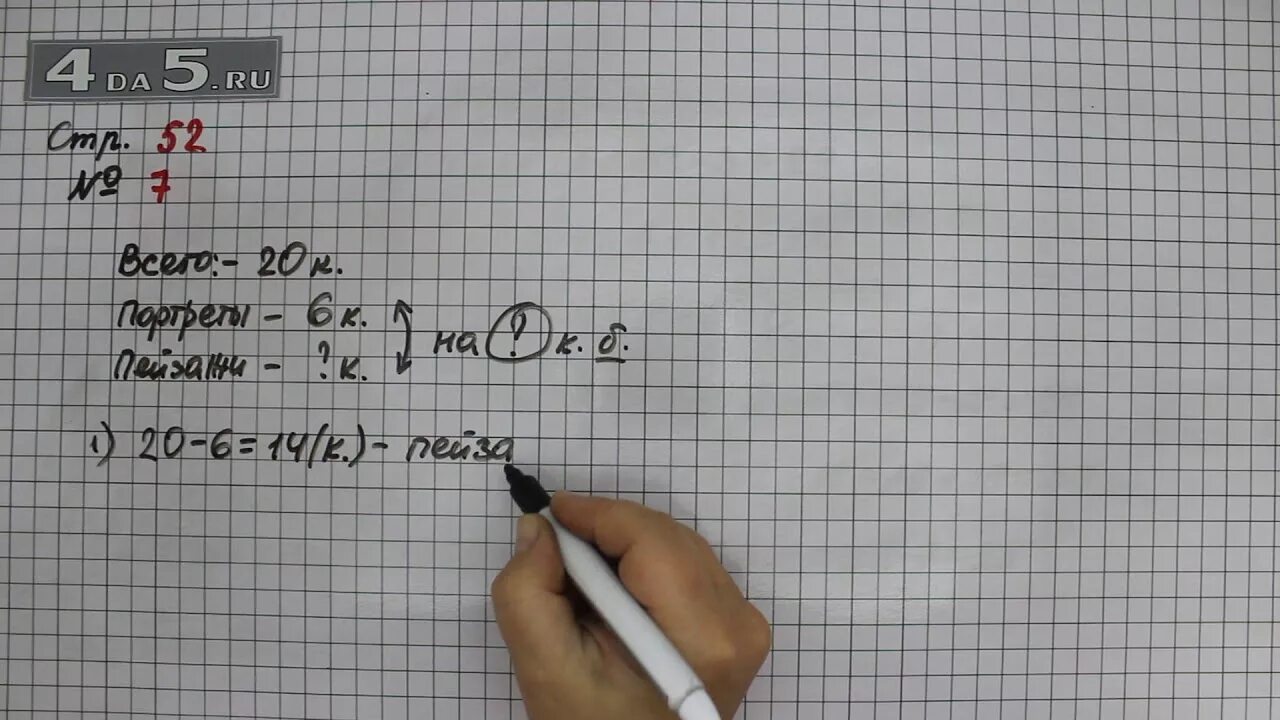 4DA5.RU
Стр. 52
№ 7
Всего:- 20 к.
Портреты - 6 к.
Пейзажи - ? к.
на ? к. б.
1) 20-6=14(к.)- пейза